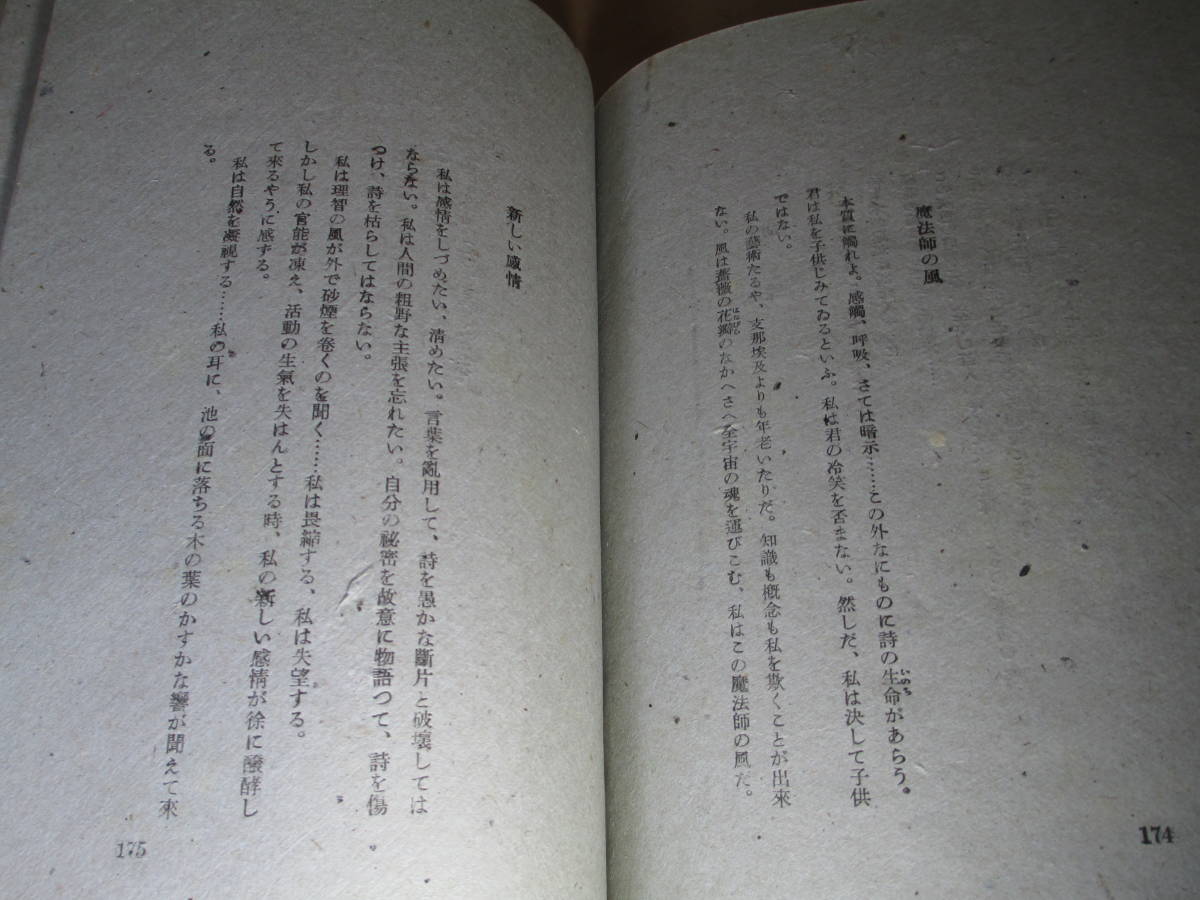 魔法師の風
本質に觸れよ。感觸、呼吸、さては暗示……この外なにものに詩の生命があらう。
いのち
君は私を子供じみてゐるといふ。私は君の冷笑を否まない。然しだ、私は決して子供
ではない。
私の藝術たるや、支那埃及よりも年老いたりだ。知識も概念も私を欺くことが出來
ない。風は薔薇の花瓣のなかへさへ全宇宙の魂を運びこむ、私はこの魔法師の風だ。
はなびら
174
新しい感情
私は感情をしづめたい、淸めたい。言葉を亂用して、詩を愚かな斷片と破壞しては
ならない。私は人間の粗野な主張を忘れたい。自分の祕密を故意に物語つて、詩を傷
つけ、詩を枯らしてはならない。
私は理智の風が外で砂煙を卷くのを聞く……私は畏縮する、私は失望する。
しかし私の官能が凍え、活動の生氣を失はんとする時、私の新しい感情が徐に醱酵し
て來るやうに感ずる。
私は自然を凝視する……私の耳に、池の面に落ちる木の葉のかすかな響が聞えて來
る。
175